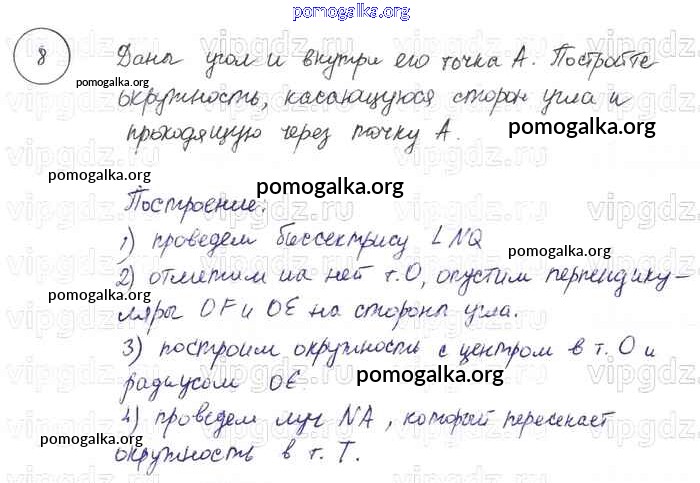 pomogalka.org
8 Даны угол и внутри его точка А. Постройте
pomogalka.org
окружность, касающуюся сторон угла и
pomogalka.org
проходящую через точку А.
pomogalka.org
pomogalka.org
Построение:
1) проведем биссектрису ∠NQ
pomogalka.org
2) отметим на ней т.О, опустим перпендику-
pomogalka.org
ляры OF и OE на стороны угла.
3) построим окружность с центром в т. О и
pomogalka.org
радиусом OE.
4) проведем луч NA, который пересекает
pomogalka.org
окружность в т. Т.
vipgdz.ru